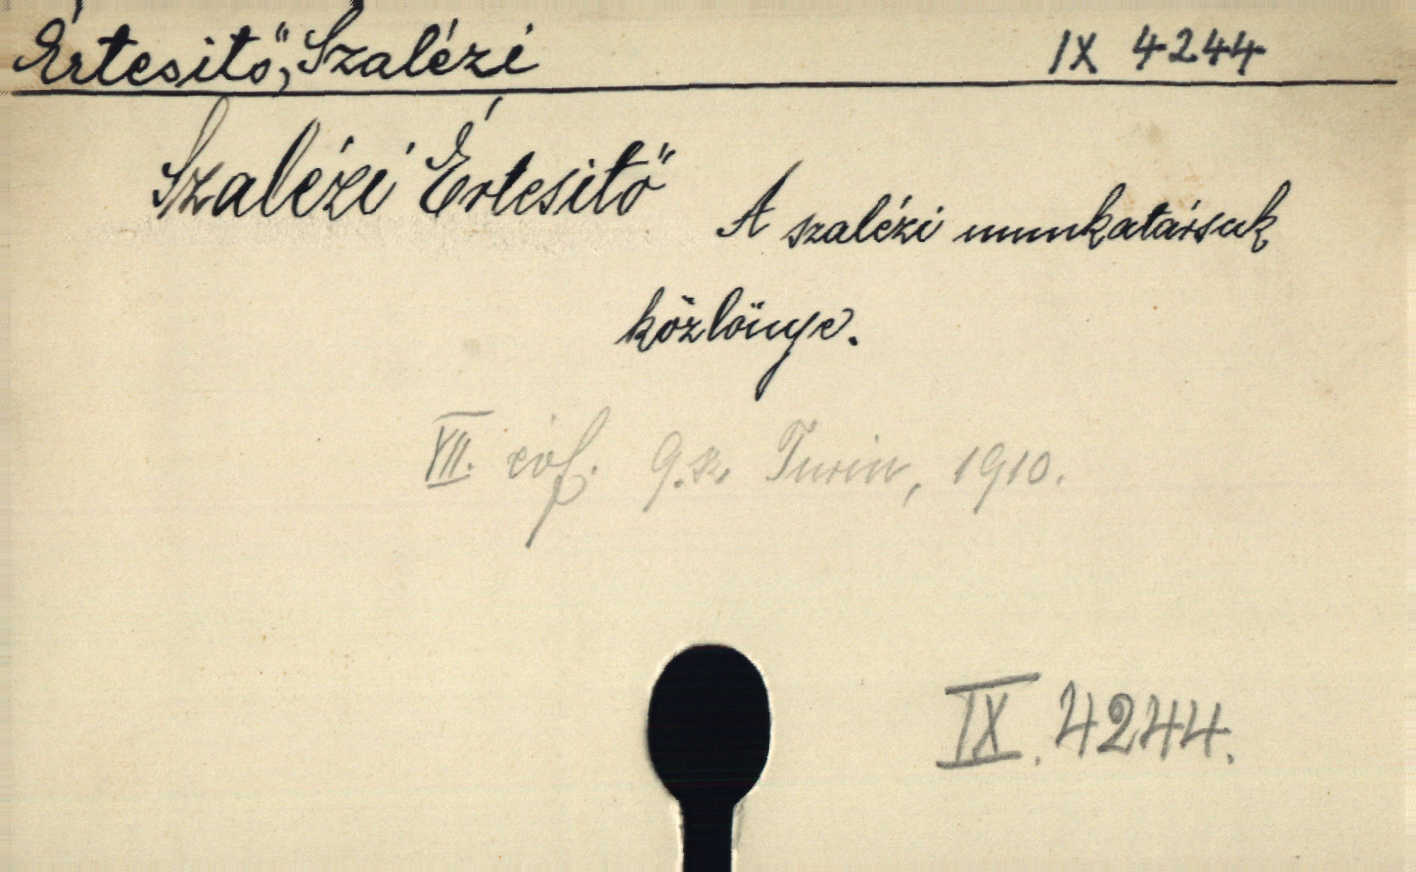 Értesitő, Szalézi IX 4244
Szalézi Értesitő A szalézi munkatársak
közlönye.
VII. évf. 9. sz. Turin, 1910.
IX. 4244.